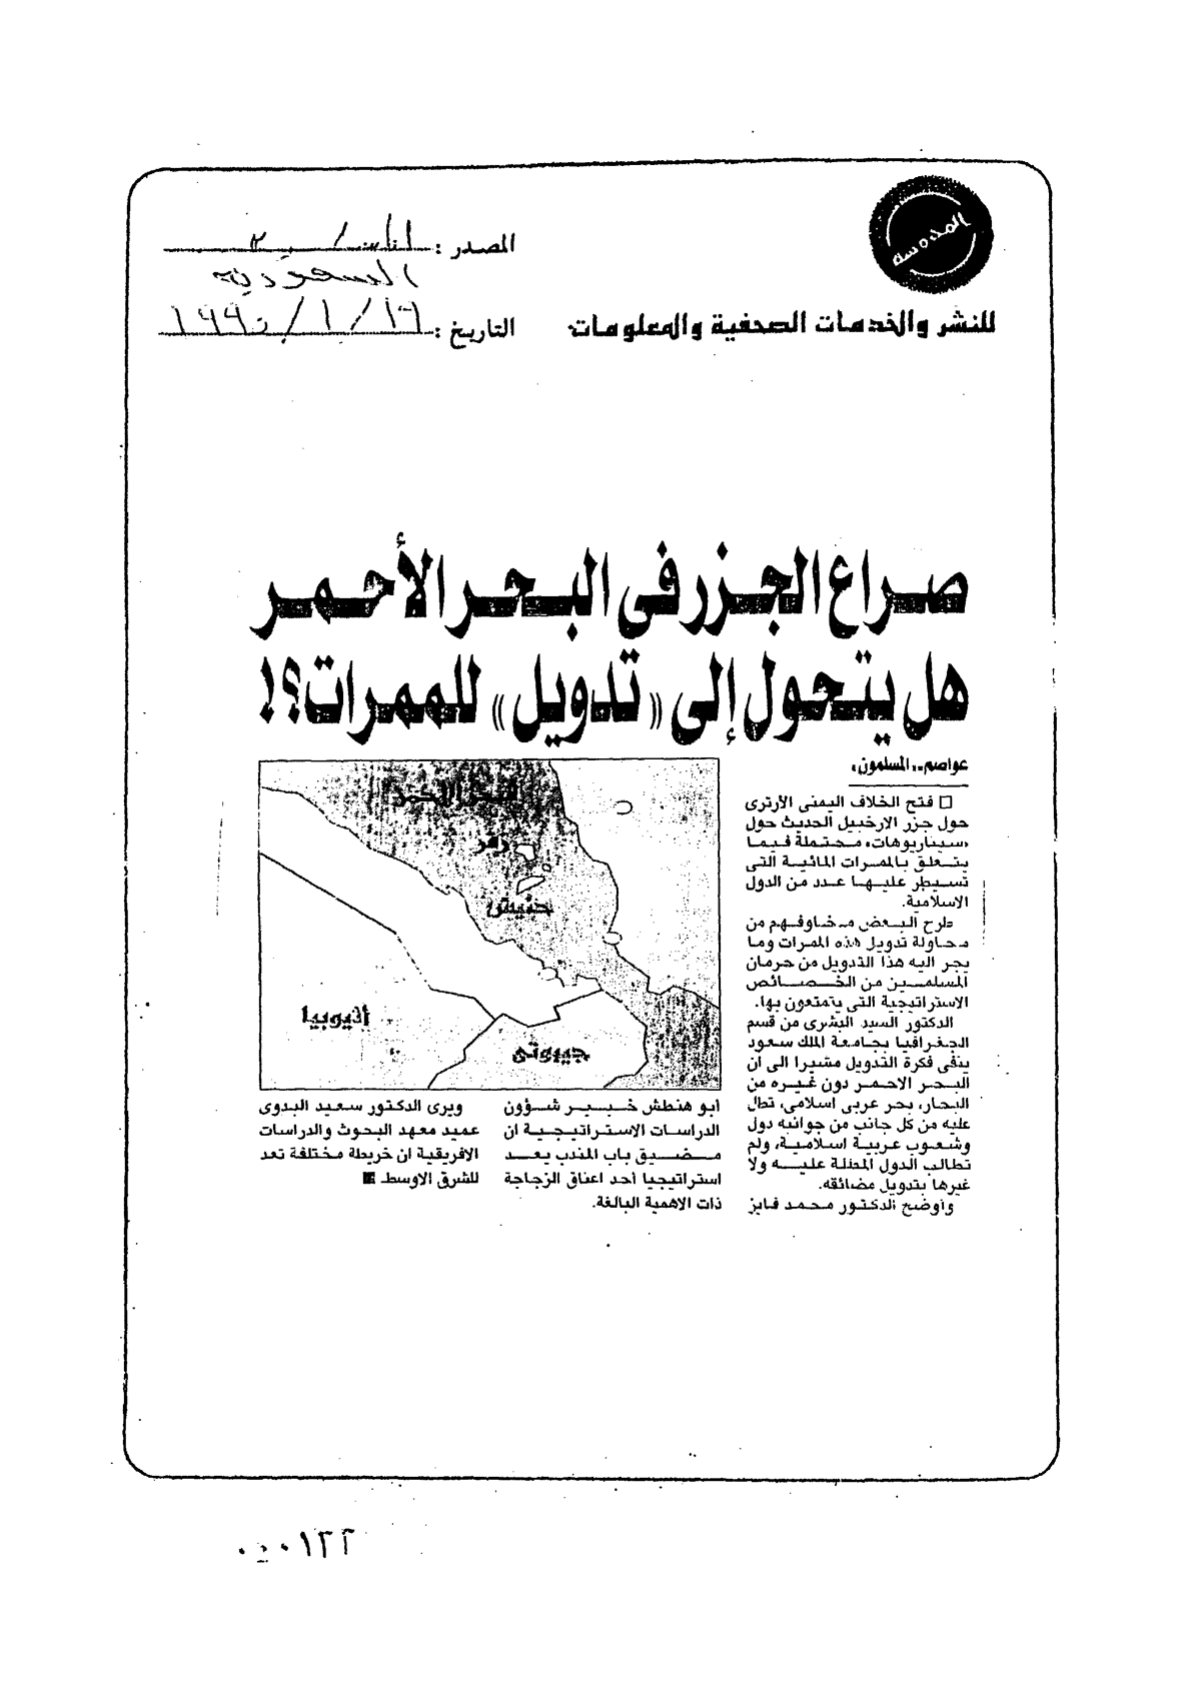 المصدر :
السعودية
للنشر والخدمات الصحفية والمعلومات
التاريخ :
صراع الجزر في البحر الأحمر
هل يتحول إلى «تدويل» للممرات؟!
عواصم.. المسلمون،
□ فتح الخلاف اليمنى الارترى
حول جزر الارخبيل الحديث حول
«سيناريوهات» محتملة فيما
يتعلق بالممرات المائية التى
تسيطر عليها عدد من الدول
الاسلامية.
طرح البعض مخاوفهم من
محاولة تدويل هذه الممرات وما
يجر اليه هذا التدويل من حرمان
المسلمين من الخصائص
الاستراتيجية التى يتمتعون بها.
الدكتور السيد البشرى من قسم
الجغرافيا بجامعة الملك سعود
ينفى فكرة التدويل مشيرا الى ان
البحر الاحمر دون غيره من
البحار، بحر عربى اسلامى، تطل
عليه من كل جانب من جوانبه دول
وشعوب عربية اسلامية، ولم
تطالب الدول المطلة عليه ولا
غيرها بتدويل مضائقه.
وأوضح الدكتور محمد فايز
البحر الاحمر
زقر
حنيش
اثيوبيا
جيبوتى
أبو هنطش خبير شؤون
الدراسات الاستراتيجية ان
مضيق باب المندب يعد
استراتيجيا أحد اعناق الزجاجة
ذات الاهمية البالغة.
ويرى الدكتور سعيد البدوى
عميد معهد البحوث والدراسات
الافريقية ان خريطة مختلفة تعد
للشرق الاوسط